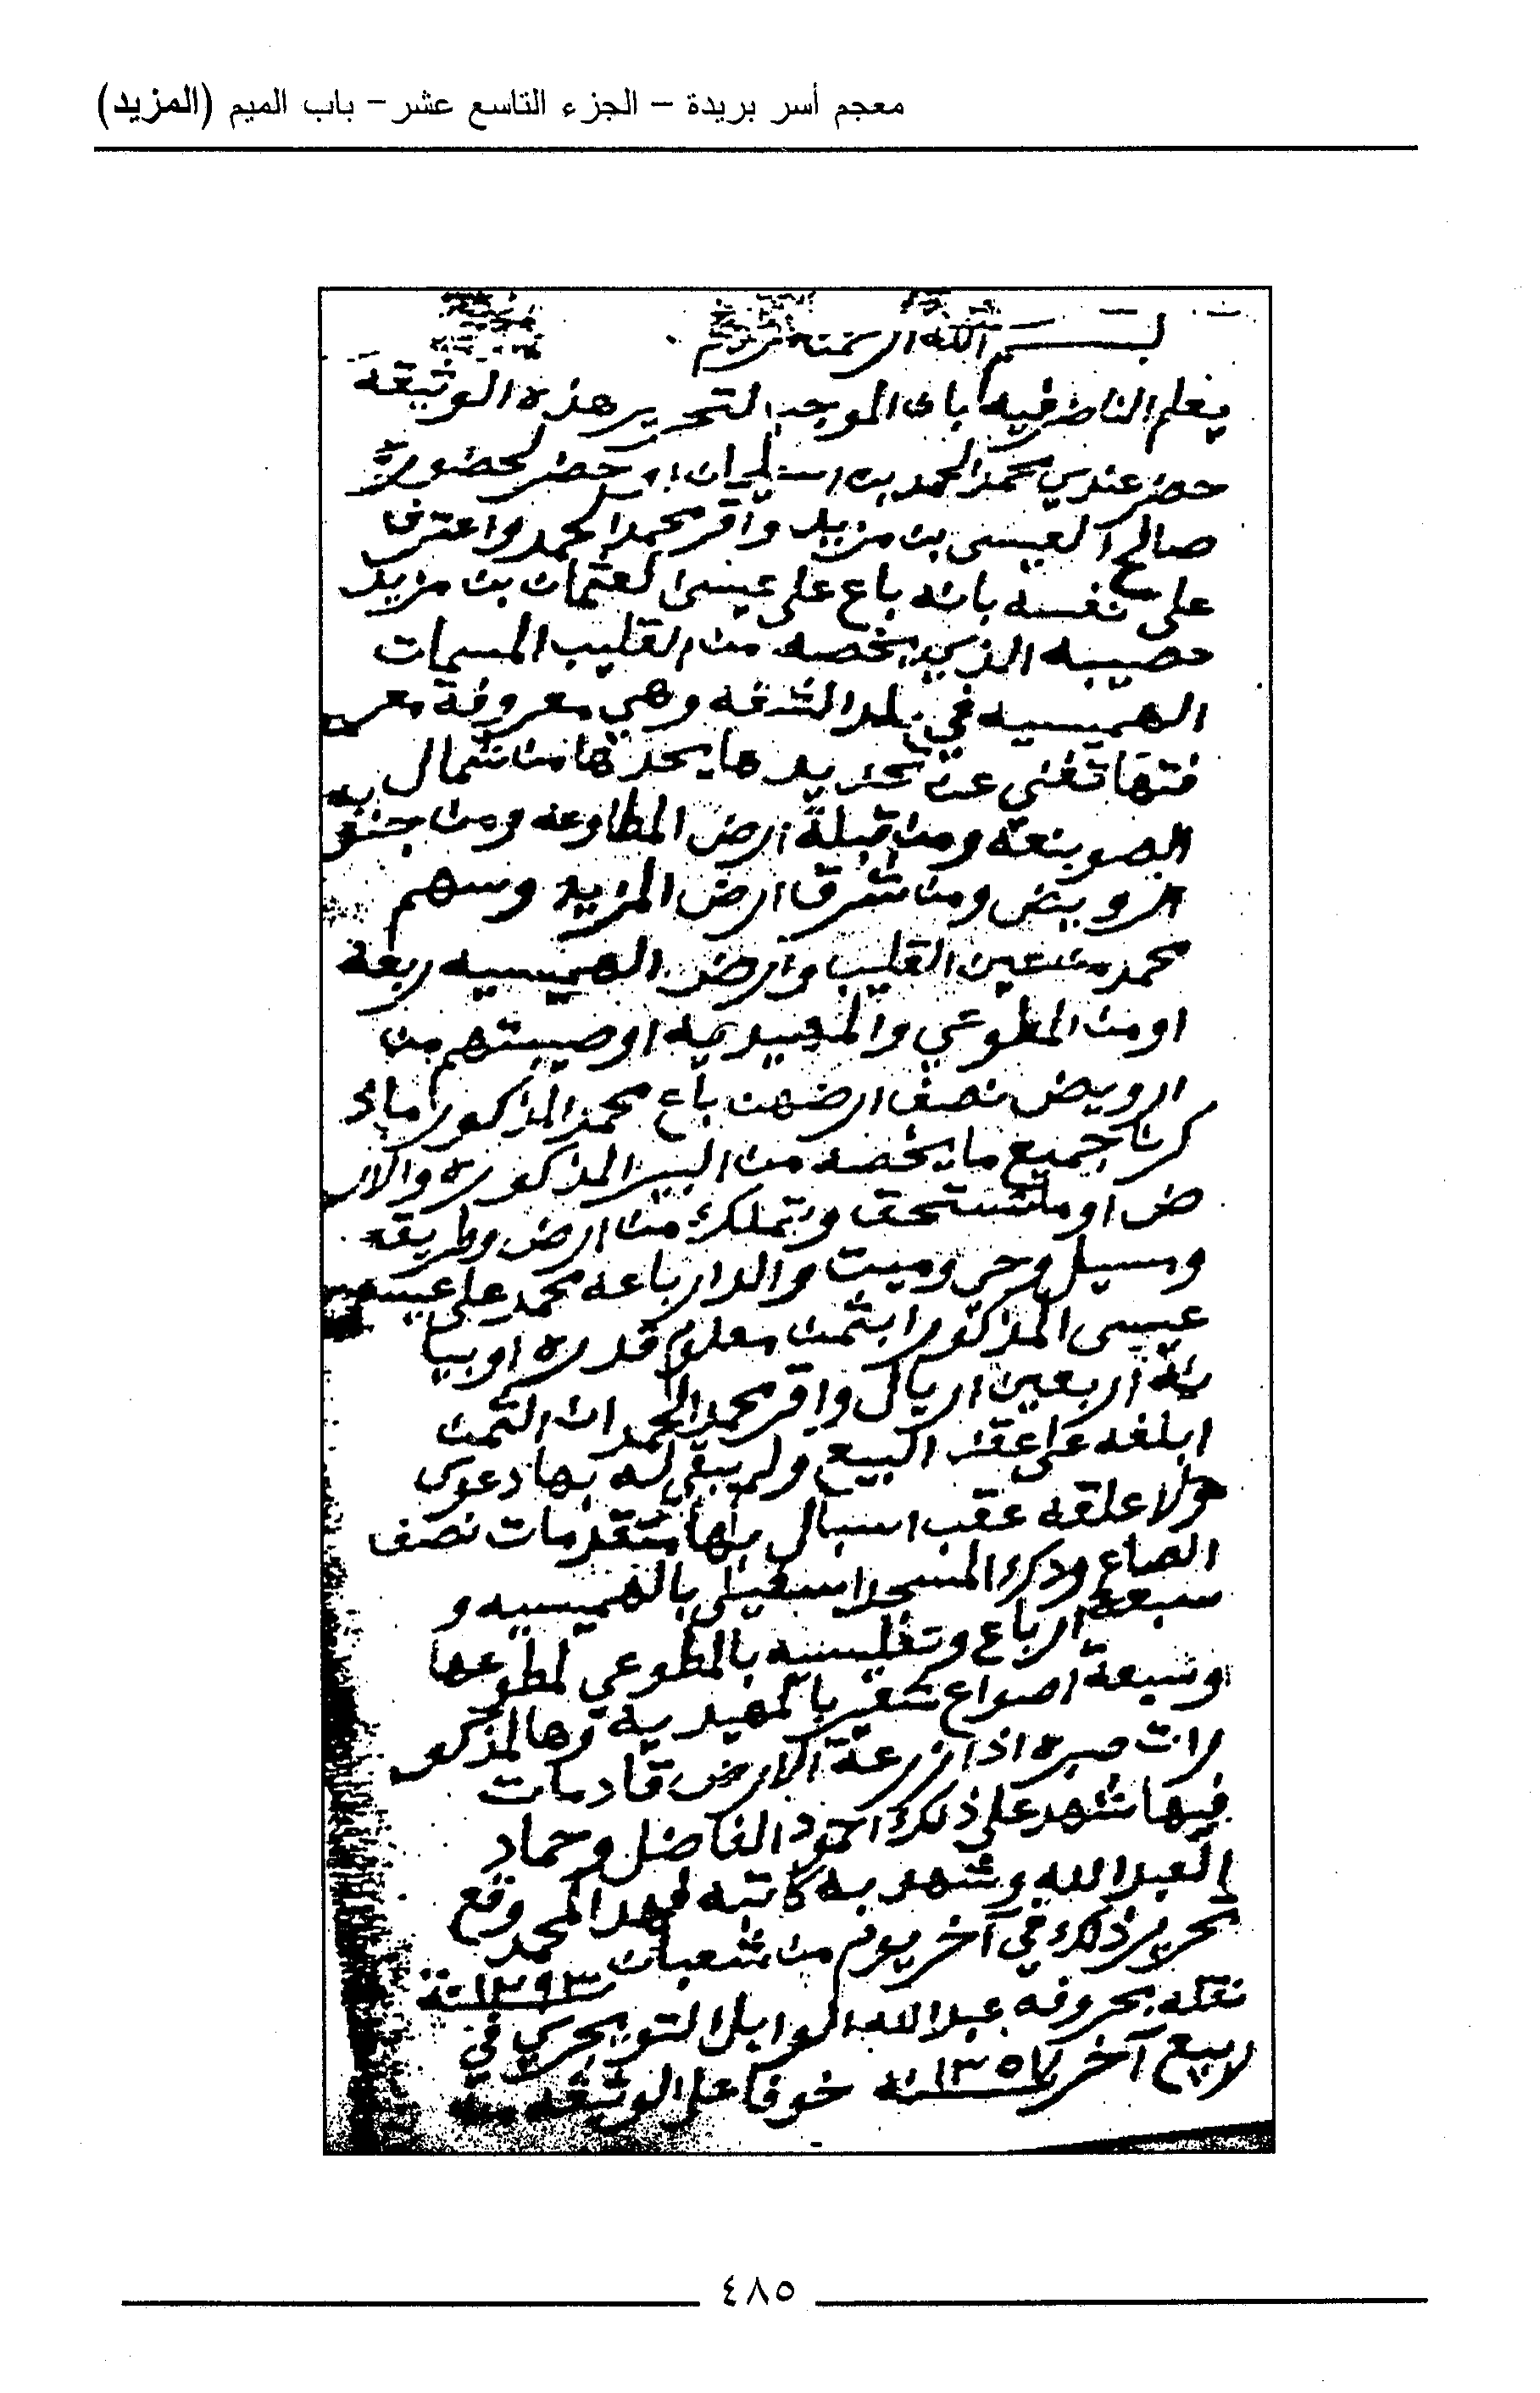 معجم أسر بريدة – الجزء التاسع عشر – باب الميم (المزيد)
بسم الله الرحمن الرحيم
يعلم الناظر فيه بان الموجب لتحرير هذه الوثيقة
حضر عندي محمد الحمد بن اسليمان وحضر لحضوره
صالح العيسى بن مزيد واقر محمد الحمد واعترف
على نفسه بانه باع على عيسى العثمان بن مزيد
مصيبه الذي يخصه من القليب المسمات
الهميسيه في بلد الشقه وهي معروفة معر
فتها تغني عن تحديدها يحدها من شمال
الصوينعه ومن قبلة ارض المطاوعه ومن جنوب
الرويض ومن شرق ارض المزيد وسهم
محمد من عين القليب وارض الهميسيه ربعه
او من المطوعي والمهيديه اوصيبتهم من
الرويض نصف ارضهن باع محمد المذكور ماذ
كرنا جميع ما يخصه من البير المذكوره والار
ض او ما تستحق وتملك من ارض وطريقه
وسيل وحي وميت والدار باعه محمد على
عيسى المذكور ابثمن معلوم قدره اوبيا
نه اربعين اريال واقر محمد الحمد ان الثمن
ابلغه على عقد البيع ولم يبقى له بها دعوى
ولا علقه عقب اسبال بها متقدمات نصف
الصاع وذكر المسجد ابسفيلى بالهميسيه و
سبعة ارباع وتغليسيه بالمطوعي لمطوعها
وسبعة اصواع شعير بالمهيديه وها المذكو
رات صبره اذا زرعة الارض قادمات
فيها شهد على ذلك احمود الفاضل وحماد
العبدالله وشهد به كاتبه فهد المحمد وقع
تحرير ذلك في آخر يوم من شعبان ١٢٩٣ سنة
نقله بحروفه عبدالله الوابل التويجري في
ربيع آخر ١٣٥٧ سنه خوفا على الوثيقه منه
٤٨٥